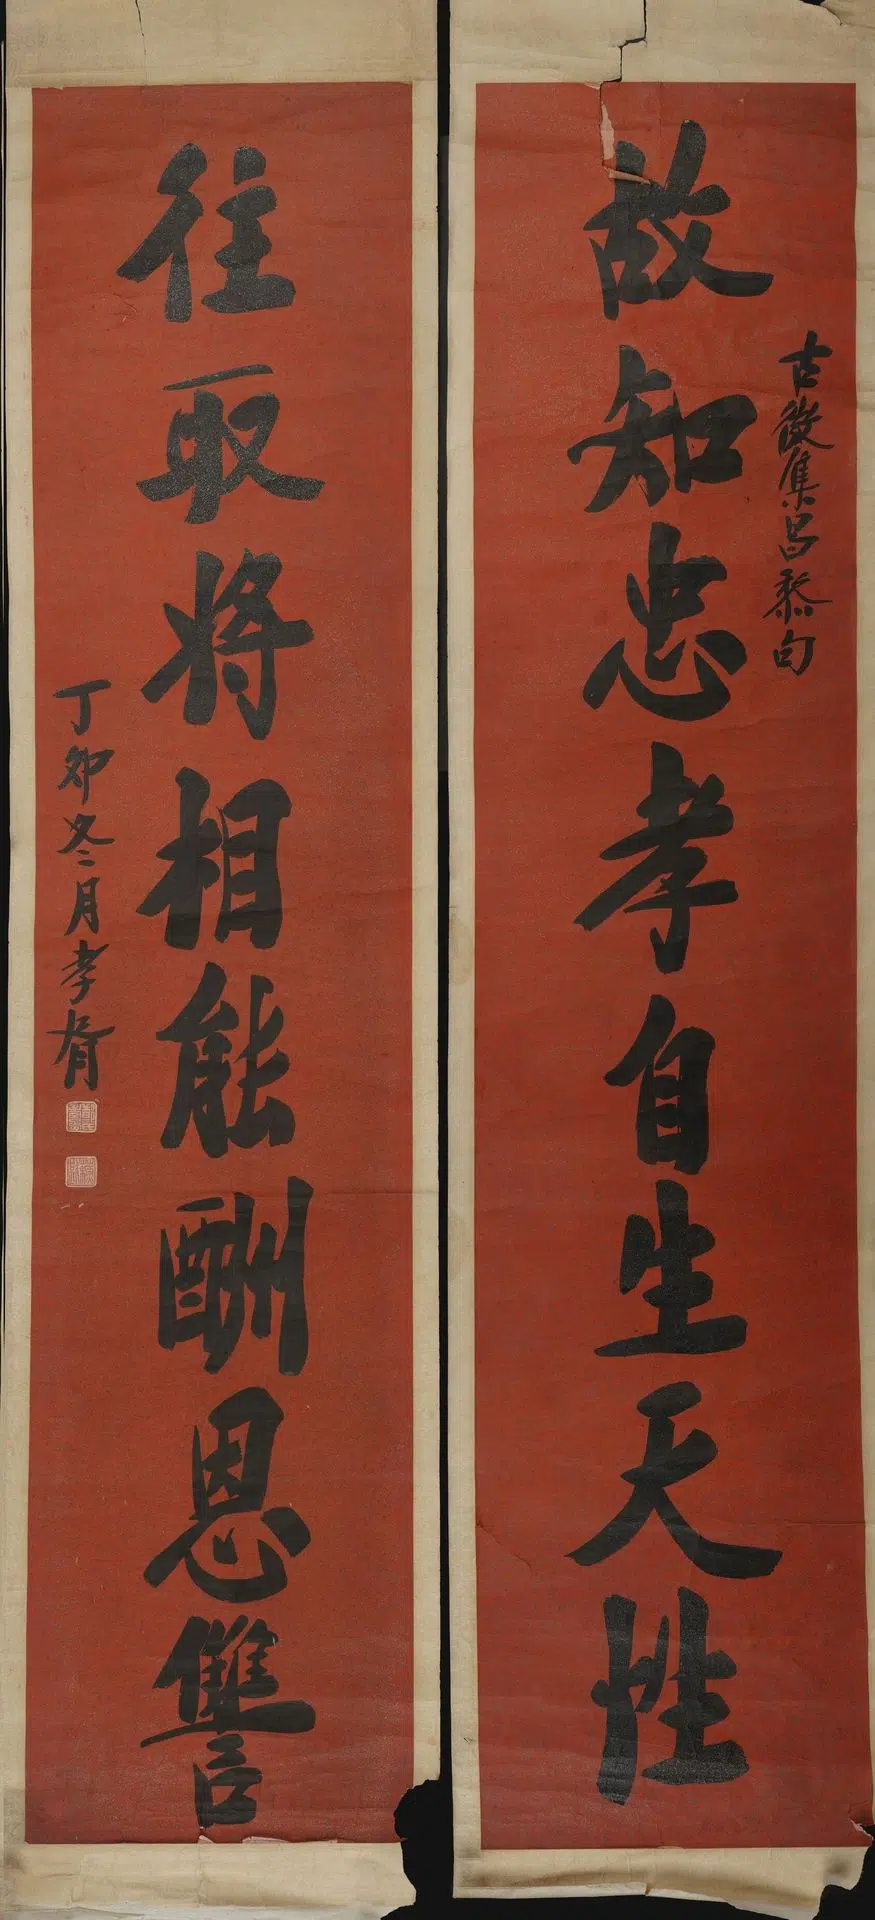 故知忠孝自生天性
古微集昌黎句
往取將相能酬恩讐
丁卯冬二月孝胥